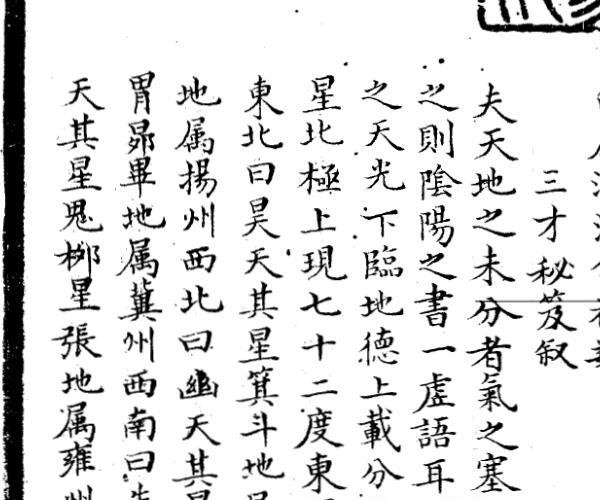 三才秘笈叙
夫天地之未分者氣之塞
之則陰陽之書一虛語耳
之天光下臨地德上載分
星北極上現七十二度東
東北曰昊天其星箕斗地
地属揚州西北曰幽天其
胃昴畢地属冀州西南曰
天其星鬼柳星張地属雍